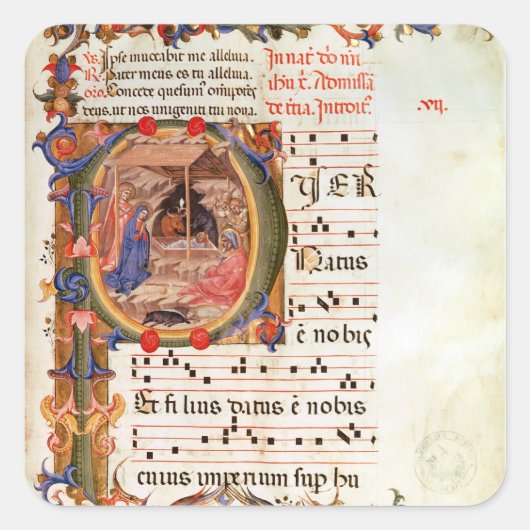 Vs Ipse invocabit me alleluia.
R Pater meus es tu alleluia.
oro. Concede quesum omnipotēs
deus. ut nos unigeniti tui nova.
In nat' dn̄i nr̄i
ihu x̄. Ad missā
de tt̄ia. Introit'.
VII.
P UER
Natus
ē nobis
Et fi lius datus ē nobis
cuius imperium sup hu